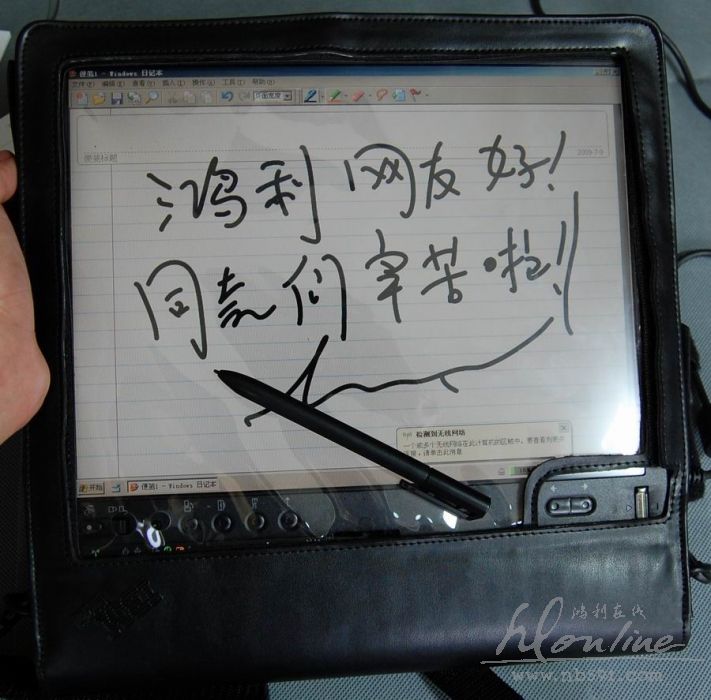 便笺1 - Windows 日记本
文件(F) 编辑(E) 查看(V) 插入(I) 操作(A) 工具(T) 帮助(H)
页面宽度
便笺标题
2009-7-9
鸿利网友好!
同志们辛苦啦!
检测到无线网络
一个或多个无线网络在此计算机的区域中。要查看列表并
连接,请单击此消息
开始
便笺1 - Windows 日记本
鸿利在线
hlonline
www.nbsot.com